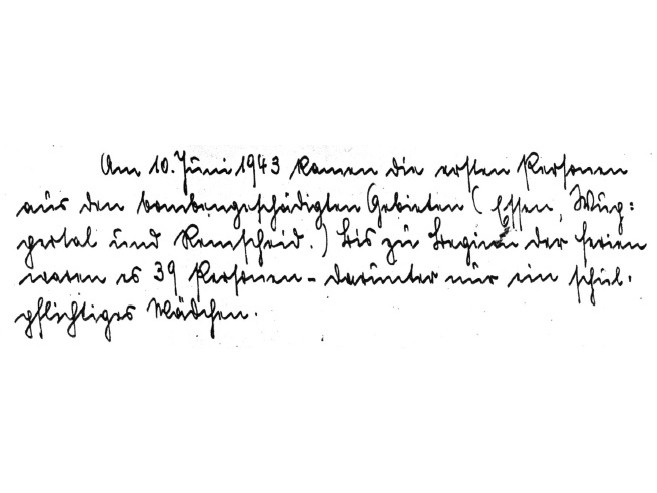 Am 10. Juni 1943 kamen die ersten Personen
aus den bombengeschädigten Gebieten (Essen, Wup=
pertal und Remscheid.) Bis zu Beginn der Ferien
waren es 39 Personen - darunter nur ein schul-
pflichtiges Mädchen.